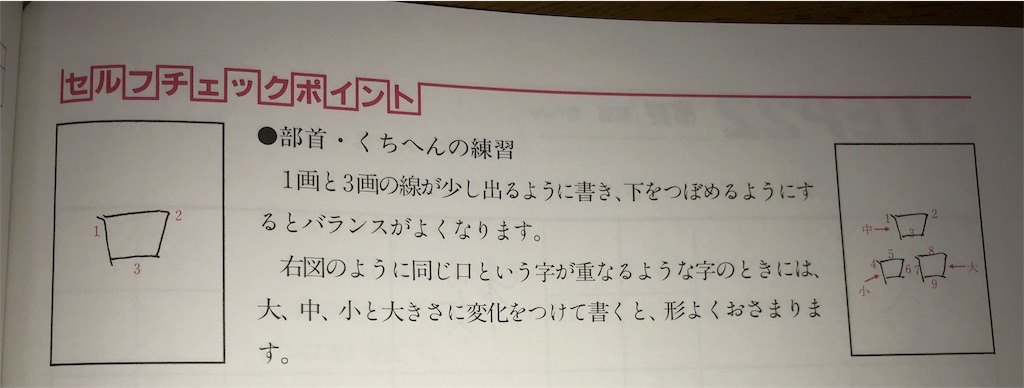 セルフチェックポイント
●部首・くちへんの練習
1画と3画の線が少し出るように書き、下をつぼめるようにす
るとバランスがよくなります。
右図のように同じ口という字が重なるような字のときには、
大、中、小と大きさに変化をつけて書くと、形よくおさまりま
す。
1
2
3
1
2
中→
3
5
8
4
6
7
←大
小
9